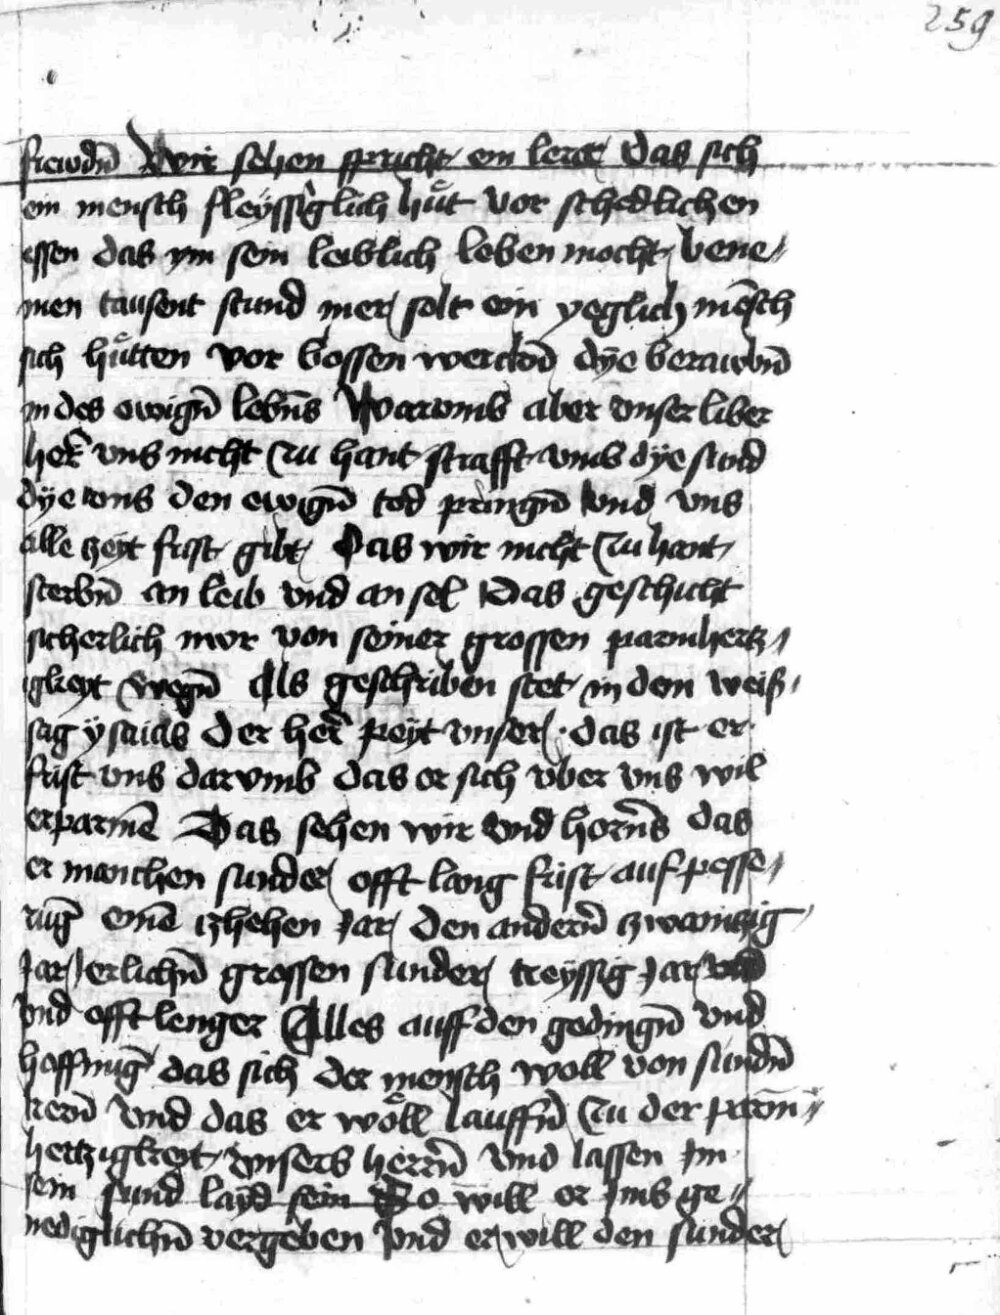 259
frewdn̄ Wir sehen spricht ein lerer das sich
ein mensch fleÿssiglich hůt vor schedlichen
essen das ym sein leiblich leben mocht bene⸗
men tausent stund mer solt ein yeglich mēsch
sich hůtten vor bossen werckn̄ dÿe berawbn̄
in des ewign̄ lebn̄s Warvmb aber vnser liber
her̄ vns nicht zu hant strafft vmb dÿe sund
dÿe vns den ewign̄ tod pringn̄ vnd vns
alle zeÿt frist gibt Das wir nicht zu hant
sterbn̄ an leib vnd an sel Das geschicht
sicherlich nvor von seiner grossen parmhertz⸗
igkeyt wegn̄ Als geschriben stet in dem weiß⸗
sag ÿsaias der her̄ peÿt vnser · das ist er
frist vns darvmb das er sich vber vns wil
erparmē Das sehen wir vnd horn̄s das
er manchen sunder offt lang frist auf pesse⸗
rūg einē zhehen Jar den andern̄ zwainczig
Jar etlichn̄ grossen sunder treÿssig Jar
vnd offt lenger Alles auff den gedingn̄ vnd
hoffnūg das sich der mensch woll von sundn̄
kern̄ vnd das er wöll lauffn̄ zu der parm⸗
hertzigkeyt vnsers herrn̄ vnd lassen Im
sein sund layd sein So will er Ims ge⸗
nediglichn̄ vergeben vnd er will den sunder